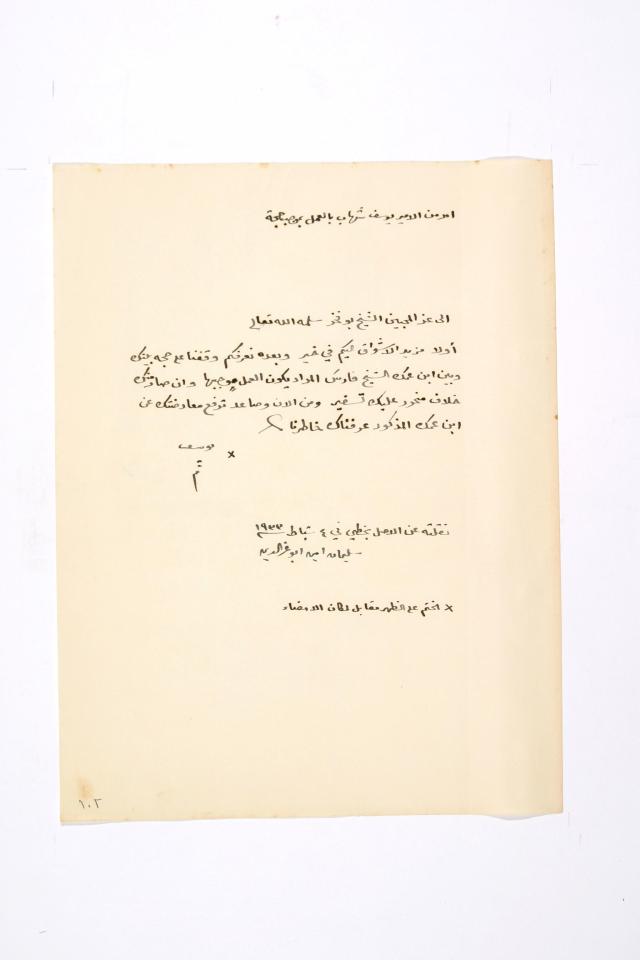 امر من الامير يوسف شهاب بالعمل بموجب حجة
الى عز المحبين الشيخ بو فخر سلمه الله تعالى
أولا مزيد الاشواق اليكم في خير وبعده نعرفكم وقفنا على حجه بينك
وبين ابن عمك الشيخ فارس المراد يكون العمل بموجبها وان صار منك
خلاف منحرر عليك تسفير ومن الان وصاعد ترفع معارضتك عن
ابن عمك المذكور عرفناك خاطرنا
x يوسف
نقلته عن الاصل بخطي في ٤ شباط سنة ١٩٣٣
سليمان امين ابو عز الدين
x الختم على الظهر مقابل مكان الامضاء
١٠٢